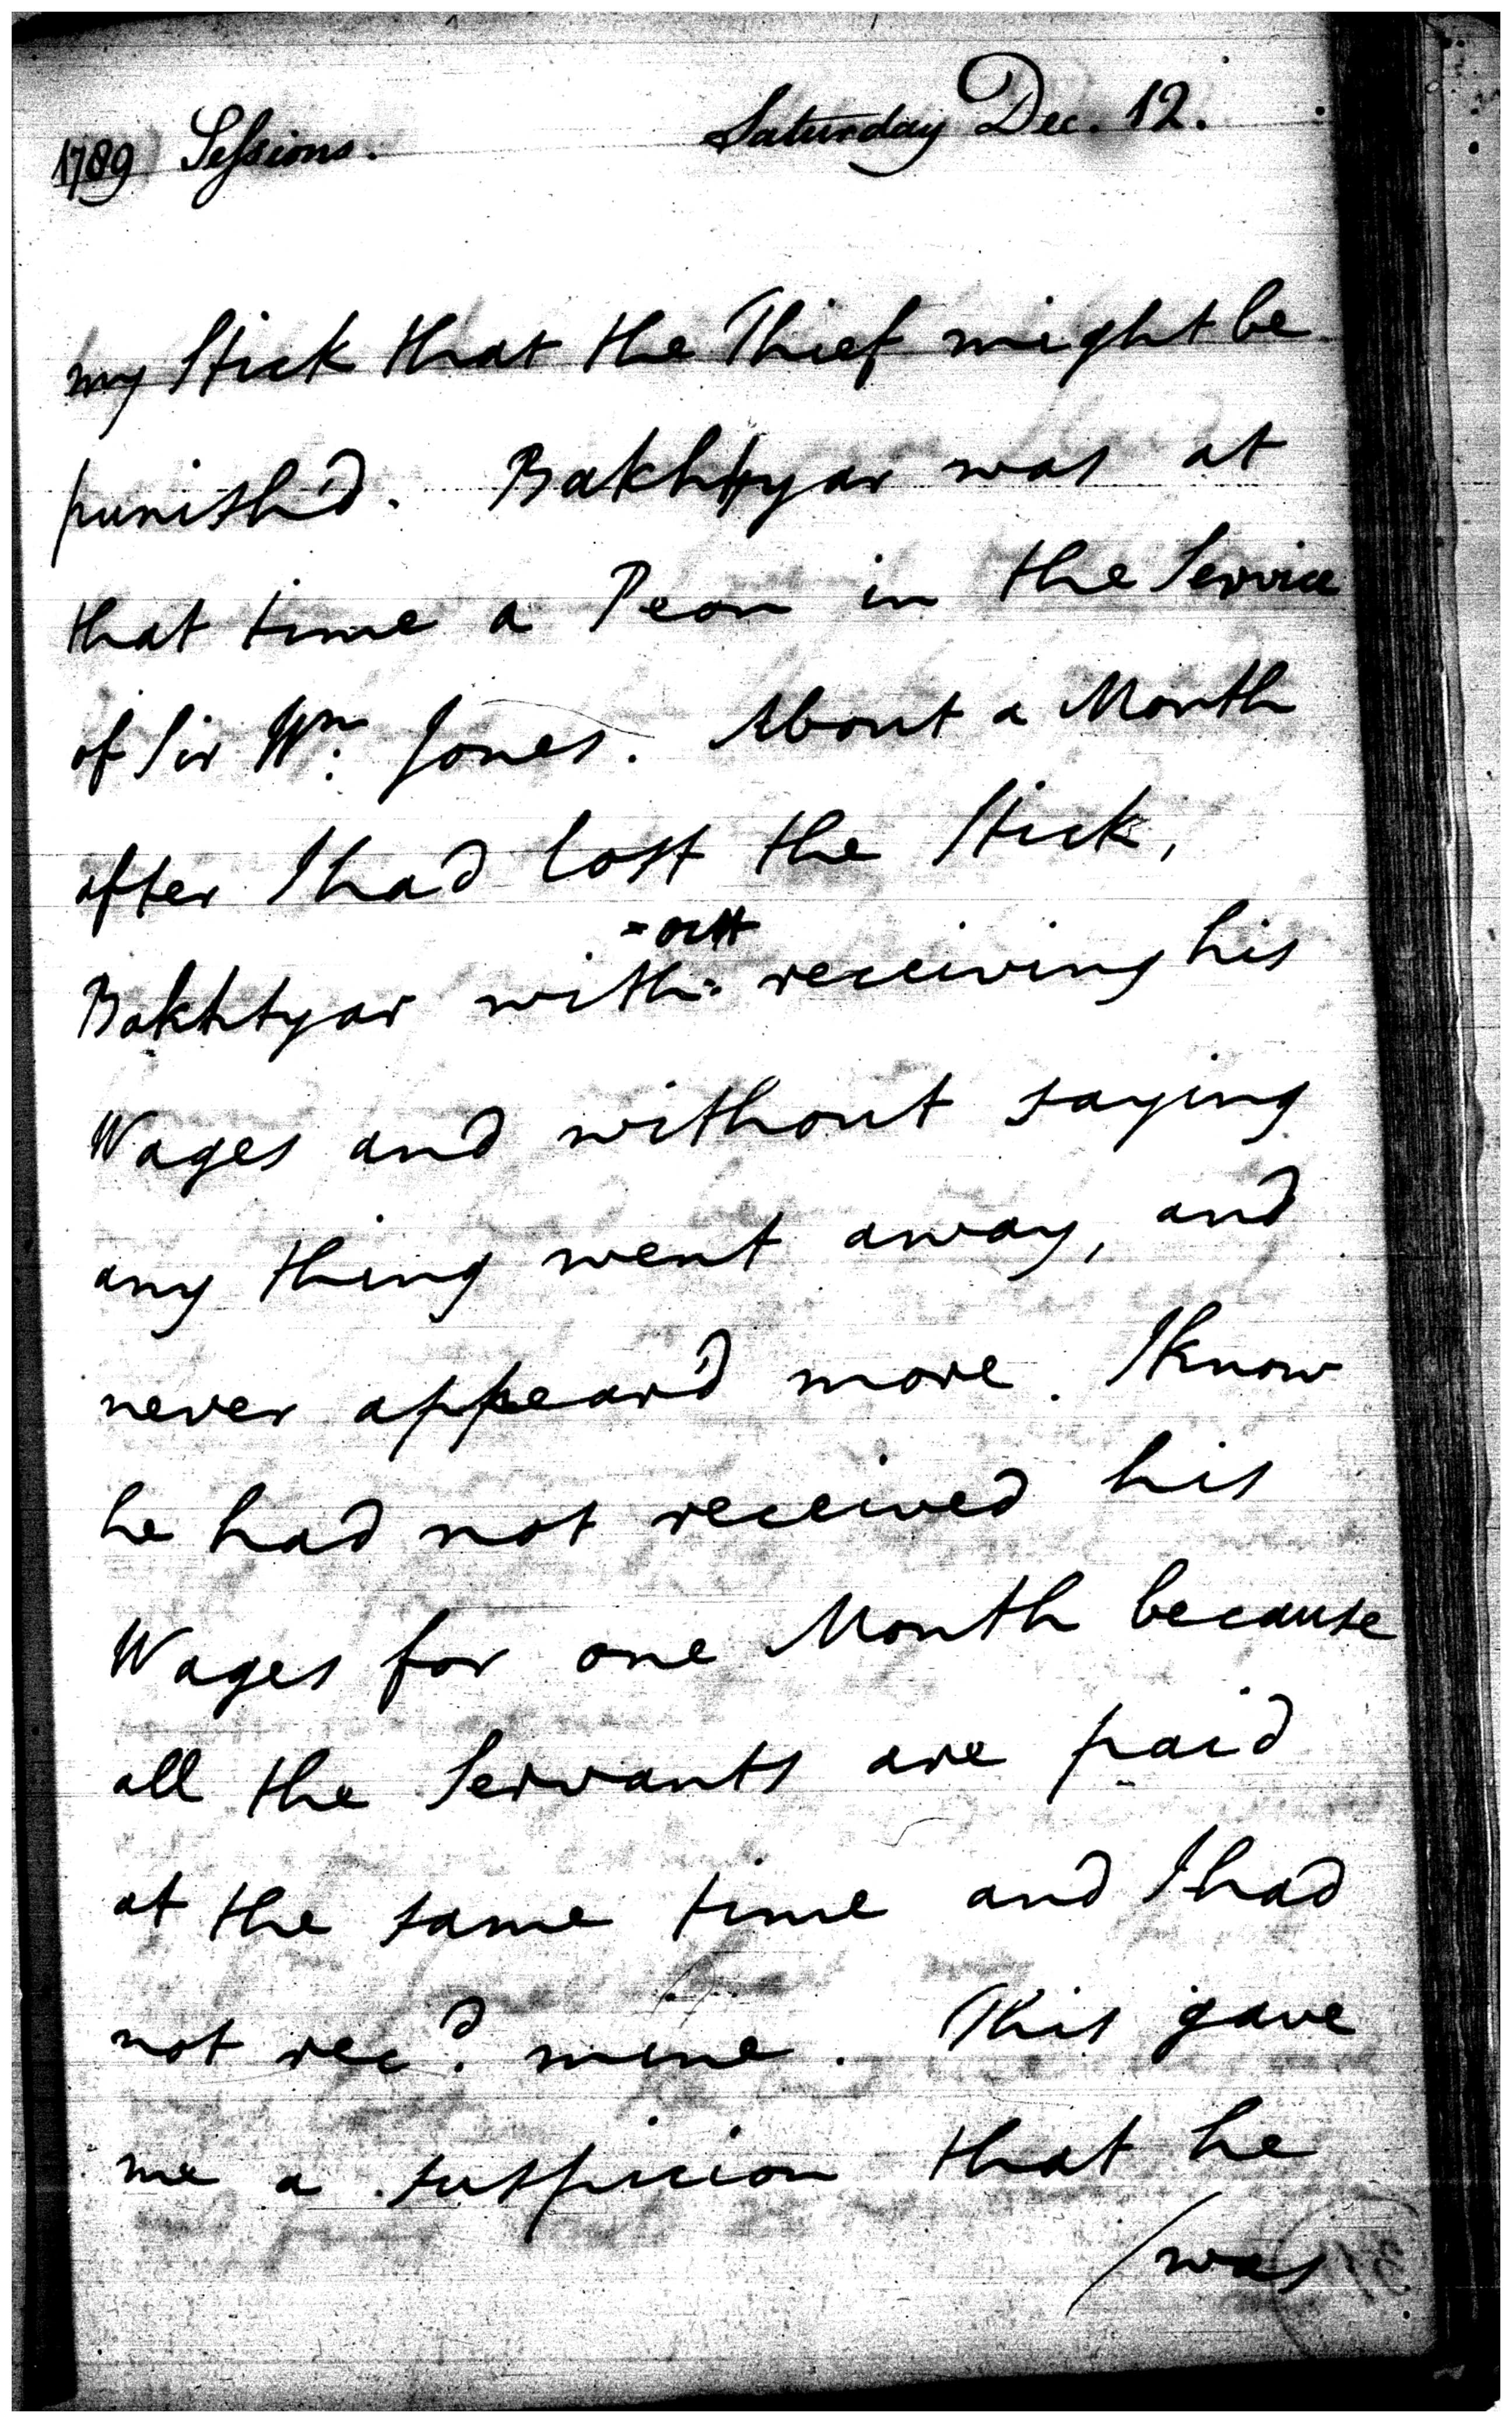 1789 Sessions. Saturday Dec. 12.
my Stick that the Thief might be
punish'd. Bakhtyar was at
that time a Peon in the Service
of Sir Wm. Jones. About a Month
after I had lost the Stick,
-out
Bakhtyar with- receiving his
Wages and without saying
any thing went away, and
never appear'd more. I know
he had not received his
Wages for one Month because
all the Servants are paid
at the same time and I had
not recd. mine. This gave
me a suspicion that he
/was